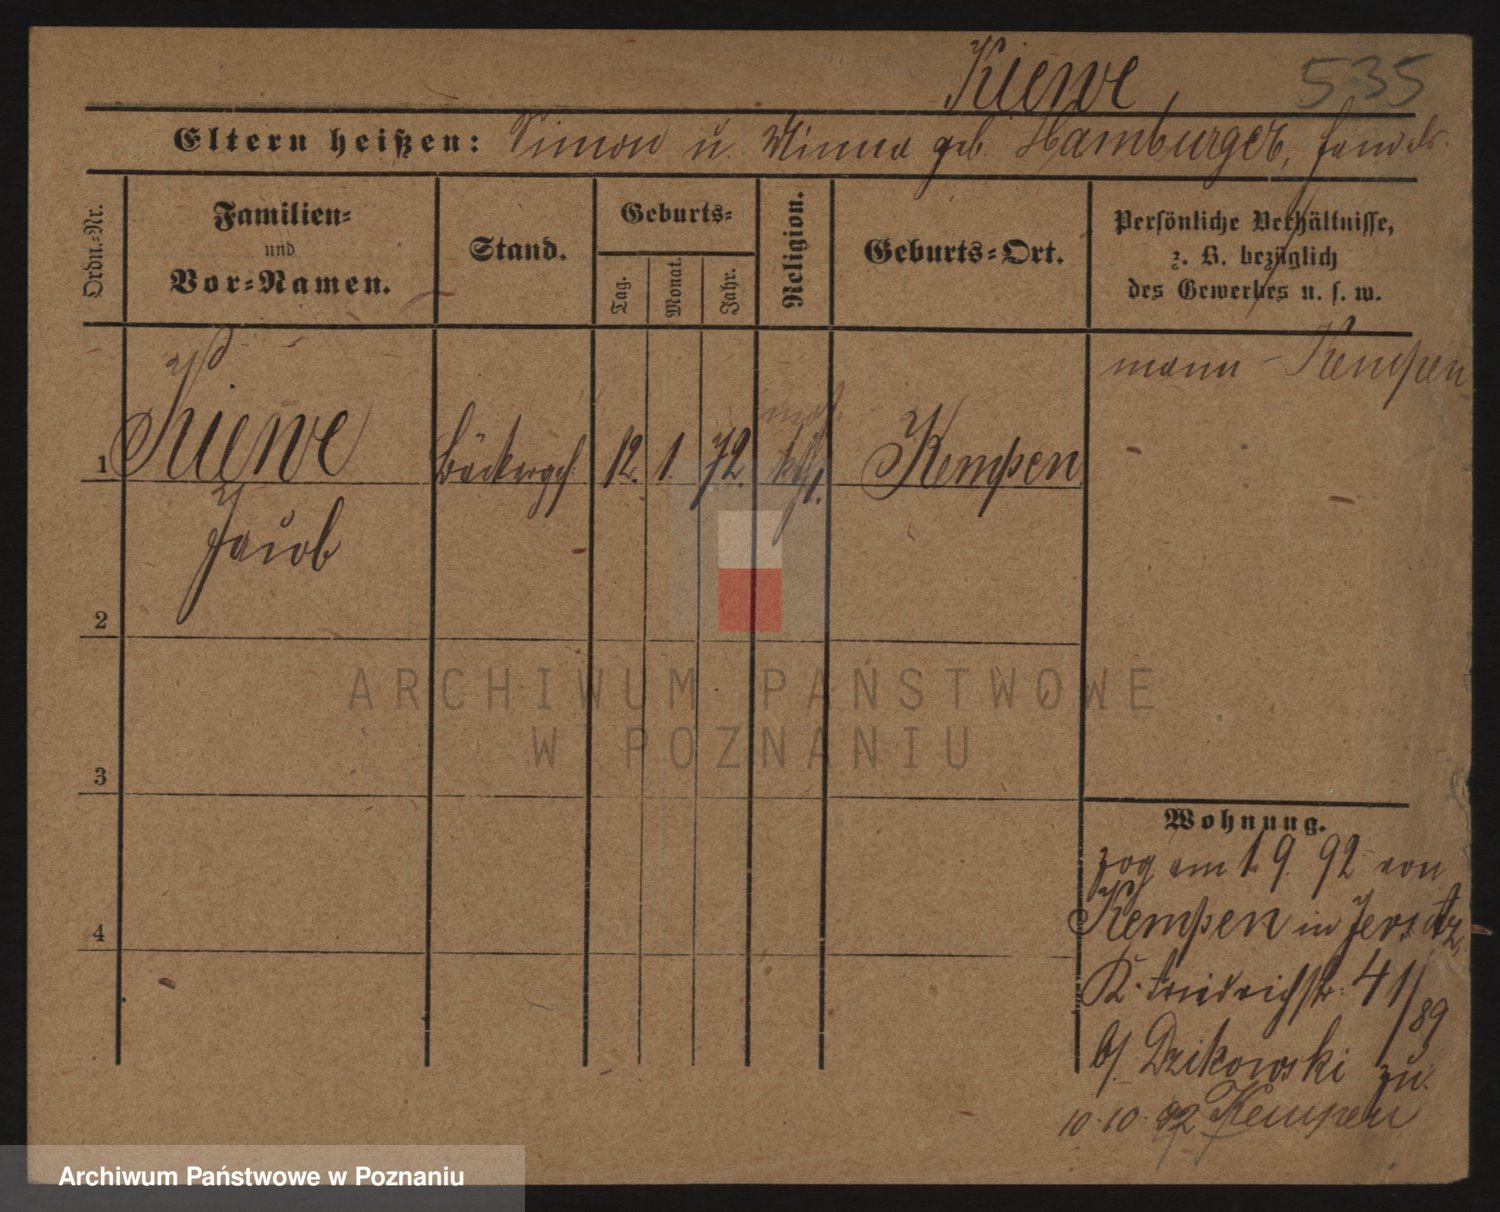 Kiewe 535
Eltern heißen: Simon u. Minna geb. Hamburger, Handels-
Ordn.-Nr.
Familien-
und
Vor-Namen.
Stand.
Geburts-
Tag.
Monat.
Jahr.
Religion.
Geburts-Ort.
Persönliche Verhältnisse,
z. B. bezüglich
des Gewerbes u. s. w.
mann - Kempen
mos.
1 Kiewe Bäckerges. 12. 1. 72. kath. Kempen
Jacob
2
3
4
Wohnung.
zog am 1. 9. 92 von
Kempen in Jersitz,
K. Friedrichstr. 41/89
b/ Dzikowski zu.
10. 10. 92 Kempen
ARCHIWUM PAŃSTWOWE
W POZNANIU
Archiwum Państwowe w Poznaniu